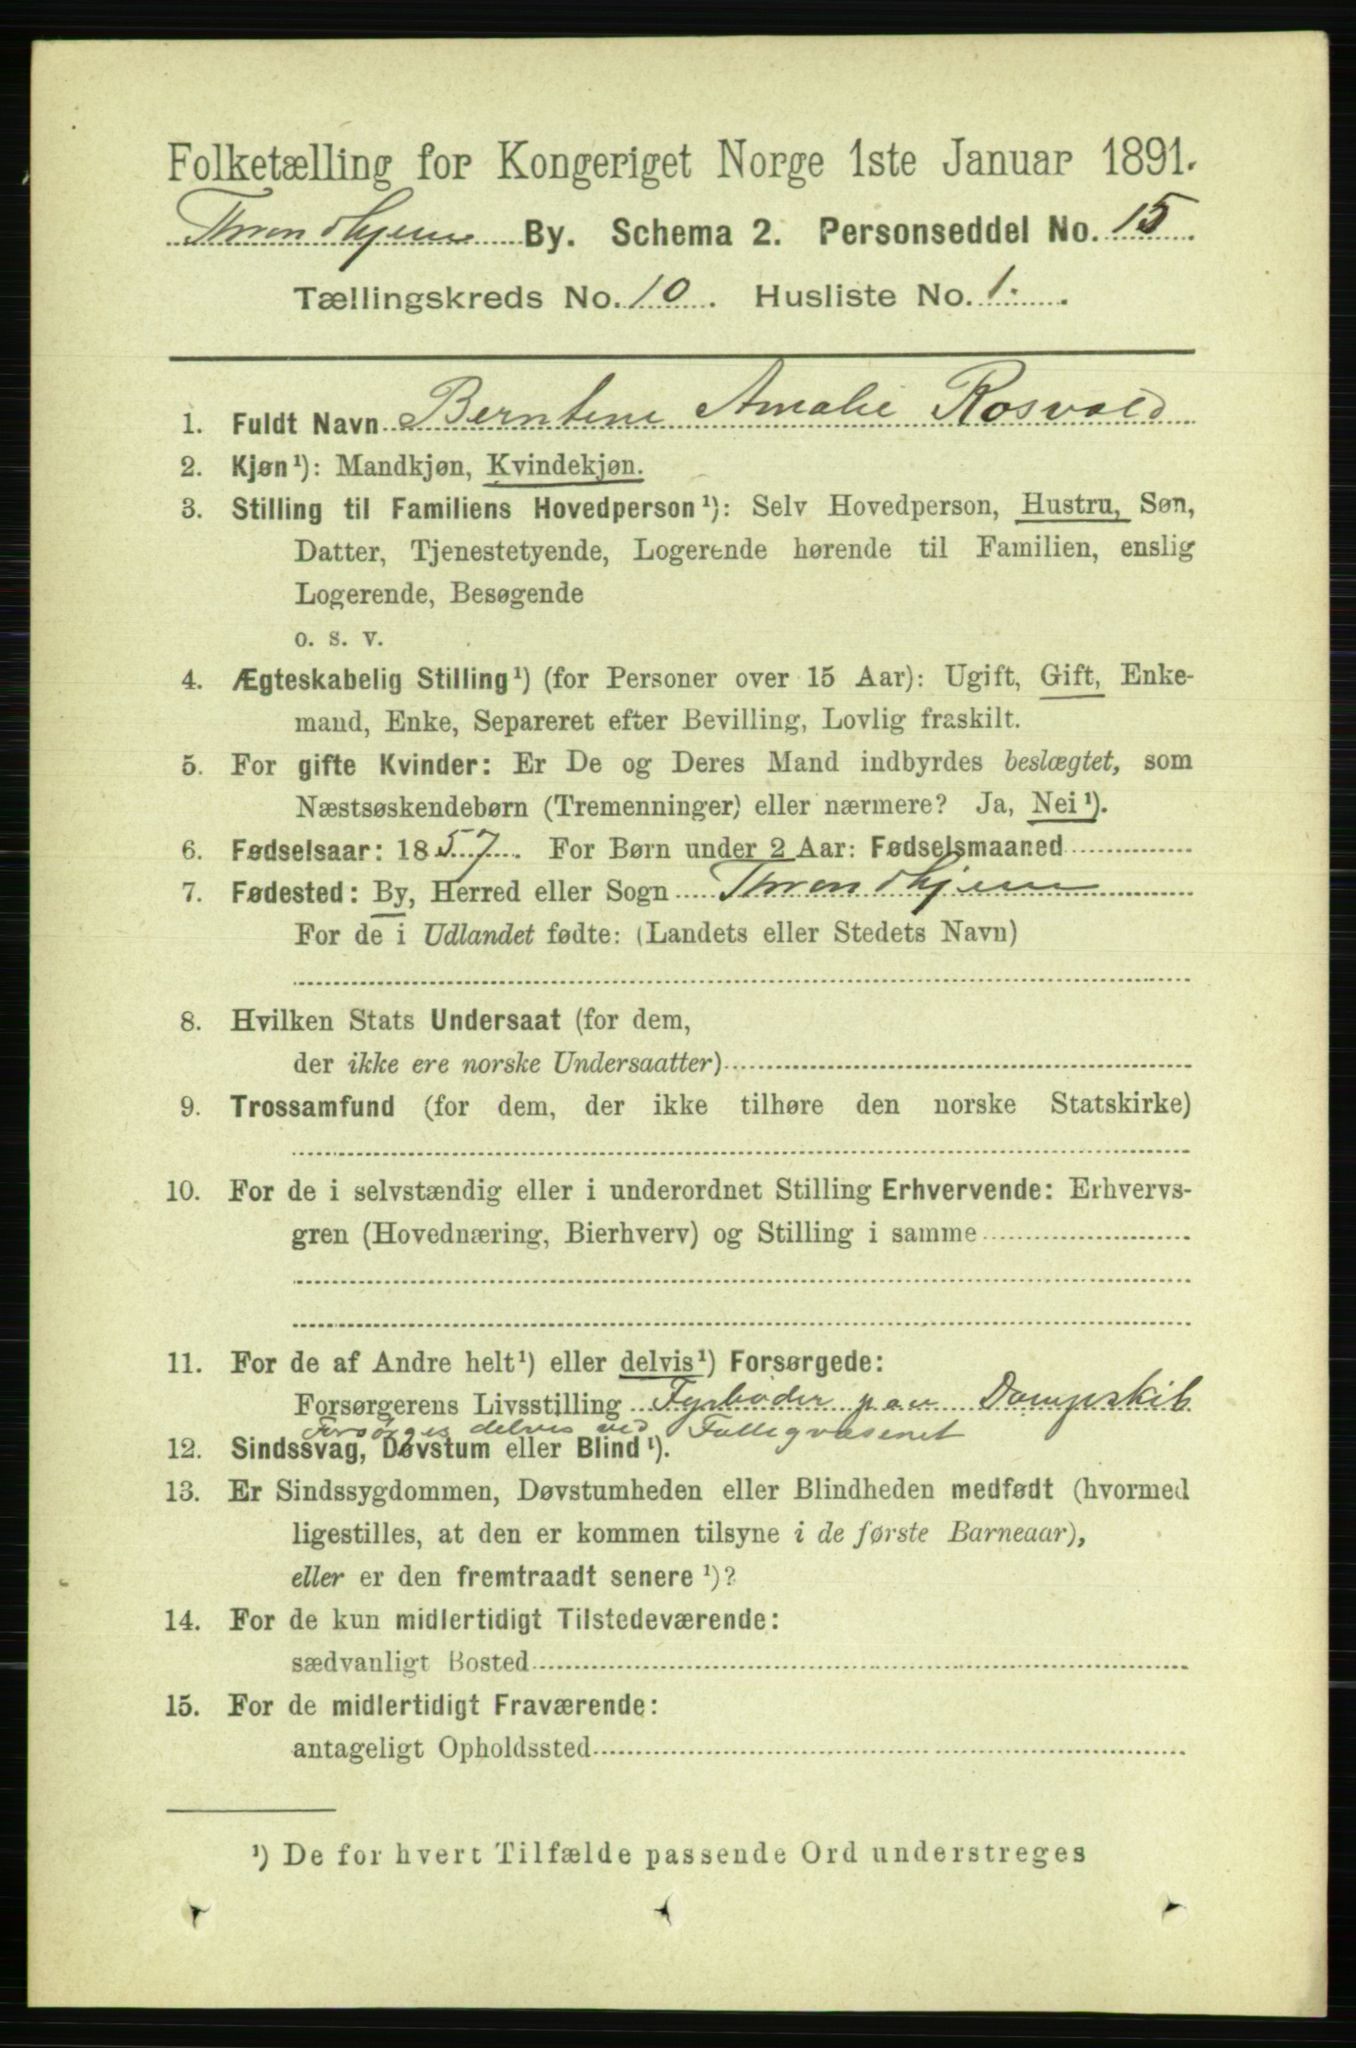 Folketælling for Kongeriget Norge 1ste Januar 1891.
Throndhjem By. Schema 2. Personseddel No. 15
Tællingskreds No. 10. Husliste No. 1.
1. Fuldt Navn Berntine Amalie Rosvold
2. Kjøn¹): Mandkjøn, Kvindekjøn.
3. Stilling til Familiens Hovedperson¹): Selv Hovedperson, Hustru, Søn,
Datter, Tjenestetyende, Logerende hørende til Familien, enslig
Logerende, Besøgende
o. s. v.
4. Ægteskabelig Stilling¹) (for Personer over 15 Aar): Ugift, Gift, Enke-
mand, Enke, Separeret efter Bevilling, Lovlig fraskilt.
5. For gifte Kvinder: Er De og Deres Mand indbyrdes beslægtet, som
Næstsøskendebørn (Tremenninger) eller nærmere? Ja, Nei¹).
6. Fødselsaar: 1857. For Børn under 2 Aar: Fødselsmaaned
7. Fødested: By, Herred eller Sogn Throndhjem
For de i Udlandet fødte: (Landets eller Stedets Navn)
8. Hvilken Stats Undersaat (for dem,
der ikke ere norske Undersaatter)
9. Trossamfund (for dem, der ikke tilhøre den norske Statskirke)
10. For de i selvstændig eller i underordnet Stilling Erhvervende: Erhvervs-
gren (Hovednæring, Bierhverv) og Stilling i samme
11. For de af Andre helt¹) eller delvis¹) Forsørgede:
Forsørgerens Livsstilling Fyrbøder paa Dampskib
Forsørges delvis ved Fattigvæsenet
12. Sindssvag, Døvstum eller Blind¹).
13. Er Sindssygdommen, Døvstumheden eller Blindheden medfødt (hvormed
ligestilles, at den er kommen tilsyne i de første Barneaar),
eller er den fremtraadt senere¹)?
14. For de kun midlertidigt Tilstedeværende:
sædvanligt Bosted
15. For de midlertidigt Fraværende:
antageligt Opholdssted
¹) De for hvert Tilfælde passende Ord understreges